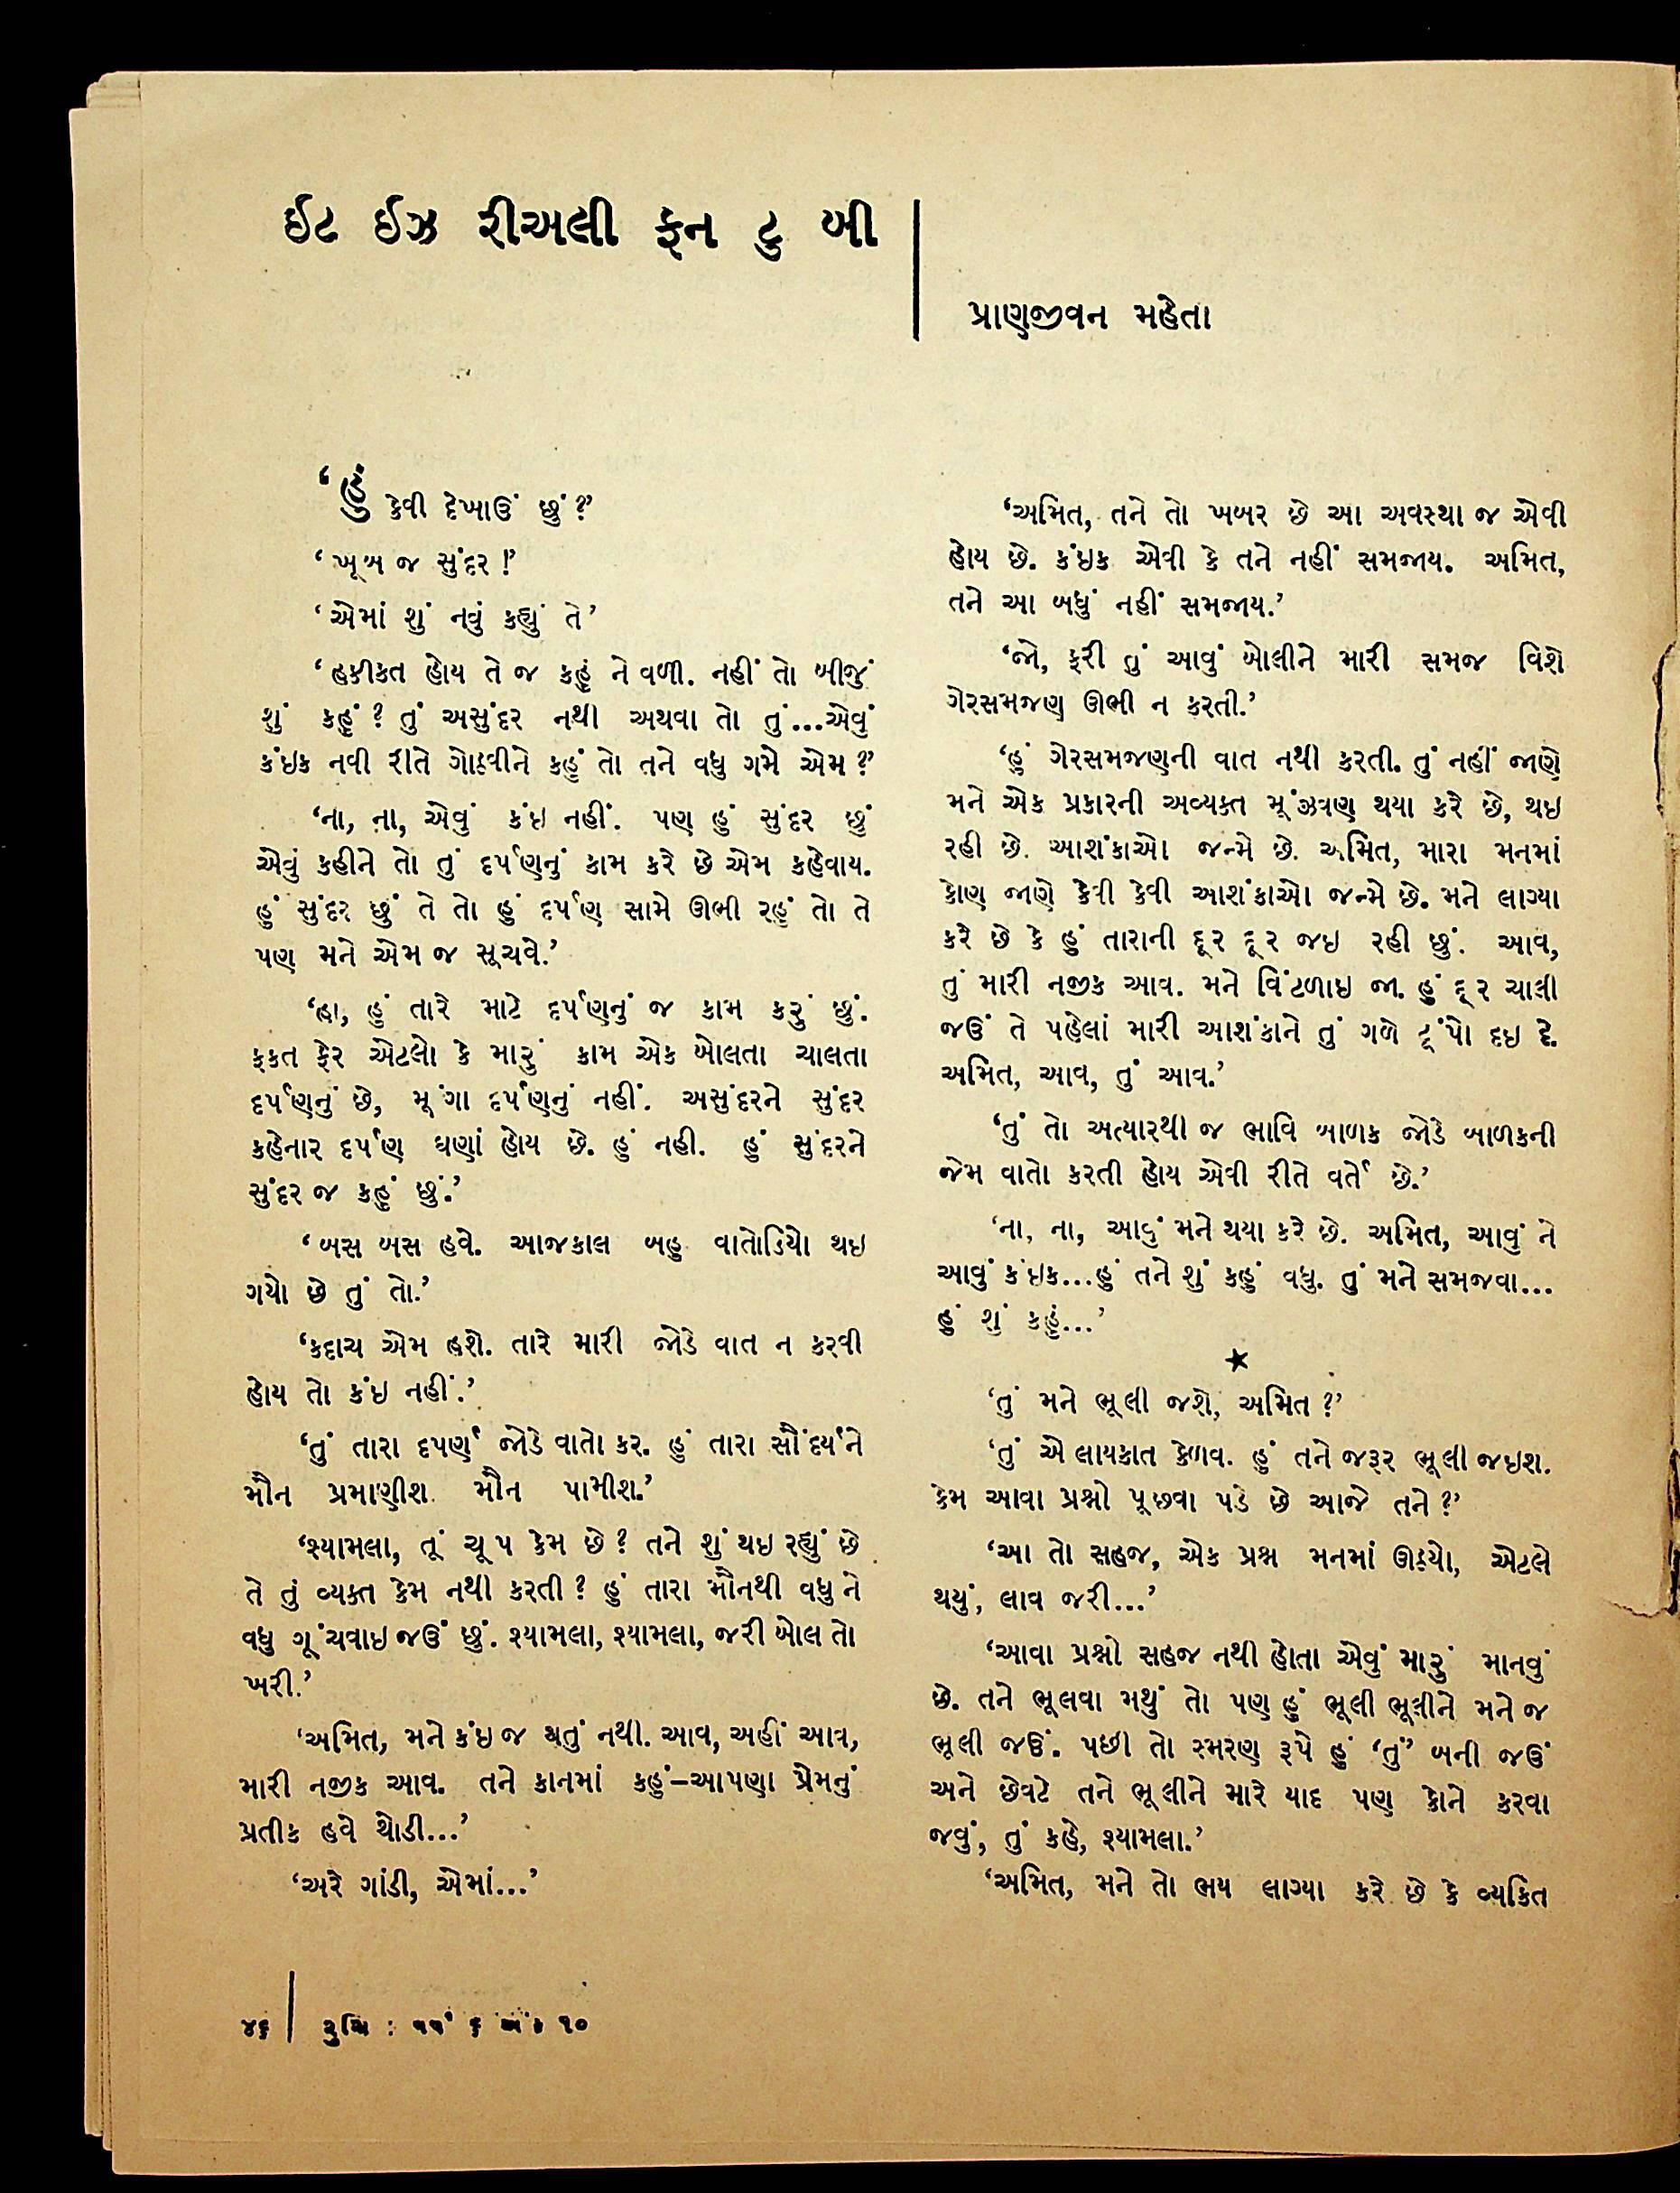 ઈટ ઈઝ રીઅલી ફન ટુ બી
પ્રાણજીવન મહેતા
‘હું કેવી દેખાઉં છું ?’
‘ ખૂબ જ સુંદર !’
‘ એમાં શું નવું કહ્યું તે’
‘ હકીકત હોય તે જ કહું ને વળી. નહીં તો બીજું
શું કહું ? તું અસુંદર નથી અથવા તો તું...એવું
કંઇક નવી રીતે ગોઠવીને કહું તો તને વધુ ગમે એમ ?’
‘ના, ના, એવું કંઇ નહીં. પણ હું સુંદર છું
એવું કહીને તો તું દર્પણનું કામ કરે છે એમ કહેવાય.
હું સુંદર છું તે તો હું દર્પણ સામે ઊભી રહું તો તે
પણ મને એમ જ સૂચવે.’
‘હા, હું તારે માટે દર્પણનું જ કામ કરું છું.
ફકત ફેર એટલો કે મારું કામ એક બોલતા ચાલતા
દર્પણનું છે, મૂંગા દર્પણનું નહીં. અસુંદરને સુંદર
કહેનાર દર્પણ ઘણાં હોય છે. હું નહી. હું સુંદરને
સુંદર જ કહું છું.’
‘ બસ બસ હવે. આજકાલ બહુ વાતોડિયો થઇ
ગયો છે તું તો.’
‘કદાચ એમ હશે. તારે મારી જોડે વાત ન કરવી
હોય તો કંઇ નહીં.’
‘તું તારા દપર્ણ જોડે વાતો કર. હું તારા સૌંદર્યને
મૌન પ્રમાણીશ. મૌન પામીશ.’
‘શ્યામલા, તૂં ચૂપ કેમ છે ? તને શું થઇ રહ્યું છે
તે તું વ્યક્ત કેમ નથી કરતી ? હું તારા મૌનથી વધુ ને
વધુ ગૂંચવાઇ જઉં છું. શ્યામલા, શ્યામલા, જરી બોલ તો
ખરી.’
‘અમિત, મને કંઇ જ થતું નથી. આવ, અહીં આવ,
મારી નજીક આવ. તને કાનમાં કહું–આપણા પ્રેમનું
પ્રતીક હવે થોડી...’
‘અરે ગાંડી, એમાં...’
‘અમિત, તને તો ખબર છે આ અવસ્થા જ એવી
હોય છે. કંઇક એવી કે તને નહીં સમજાય. અમિત,
તને આ બધું નહીં સમજાય.’
‘જો, ફરી તું આવું બોલીને મારી સમજ વિશે
ગેરસમજણ ઊભી ન કરતી.’
‘હું ગેરસમજણની વાત નથી કરતી. તું નહીં જાણે
મને એક પ્રકારની અવ્યક્ત મૂંઝવણ થયા કરે છે, થઇ
રહી છે. આશંકાઓ જન્મે છે. અમિત, મારા મનમાં
કોણ જાણે કેવી કેવી આશંકાઓ જન્મે છે. મને લાગ્યા
કરે છે કે હું તારાની દૂર દૂર જઇ રહી છું. આવ,
તું મારી નજીક આવ. મને વિંટળાઇ જા. હું દૂર ચાલી
જઉં તે પહેલાં મારી આશંકાને તું ગળે ટૂંપો દઇ દે.
અમિત, આવ, તું આવ.’
‘તું તો અત્યારથી જ ભાવિ બાળક જોડે બાળકની
જેમ વાતો કરતી હોય એવી રીતે વર્તે છે.’
‘ના, ના, આવું મને થયા કરે છે. અમિત, આવું ને
આવું કંઇક...હું તને શું કહું વધુ. તું મને સમજવા...
હું શું કહું...’
★
‘તું મને ભૂલી જશે, અમિત ?’
‘તું એ લાયકાત કેળવ. હું તને જરૂર ભૂલી જઇશ.
કેમ આવા પ્રશ્નો પૂછવા પડે છે આજે તને ?’
‘આ તો સહજ, એક પ્રશ્ન મનમાં ઊઠયો, એટલે
થયું, લાવ જરી...’
‘આવા પ્રશ્નો સહજ નથી હોતા એવું મારું માનવું
છે. તને ભૂલવા મથું તો પણ હું ભૂલી ભૂલીને મને જ
ભૂલી જઉં. પછી તો સ્મરણ રૂપે હું ‘તું’ બની જઉં
અને છેવટે તને ભૂલીને મારે યાદ પણ કોને કરવા
જવું, તું કહે, શ્યામલા.’
‘અમિત, મને તો ભય લાગ્યા કરે છે કે વ્યકિત
૪૬ રુચિ : વર્ષ ૬ અંક ૧૦